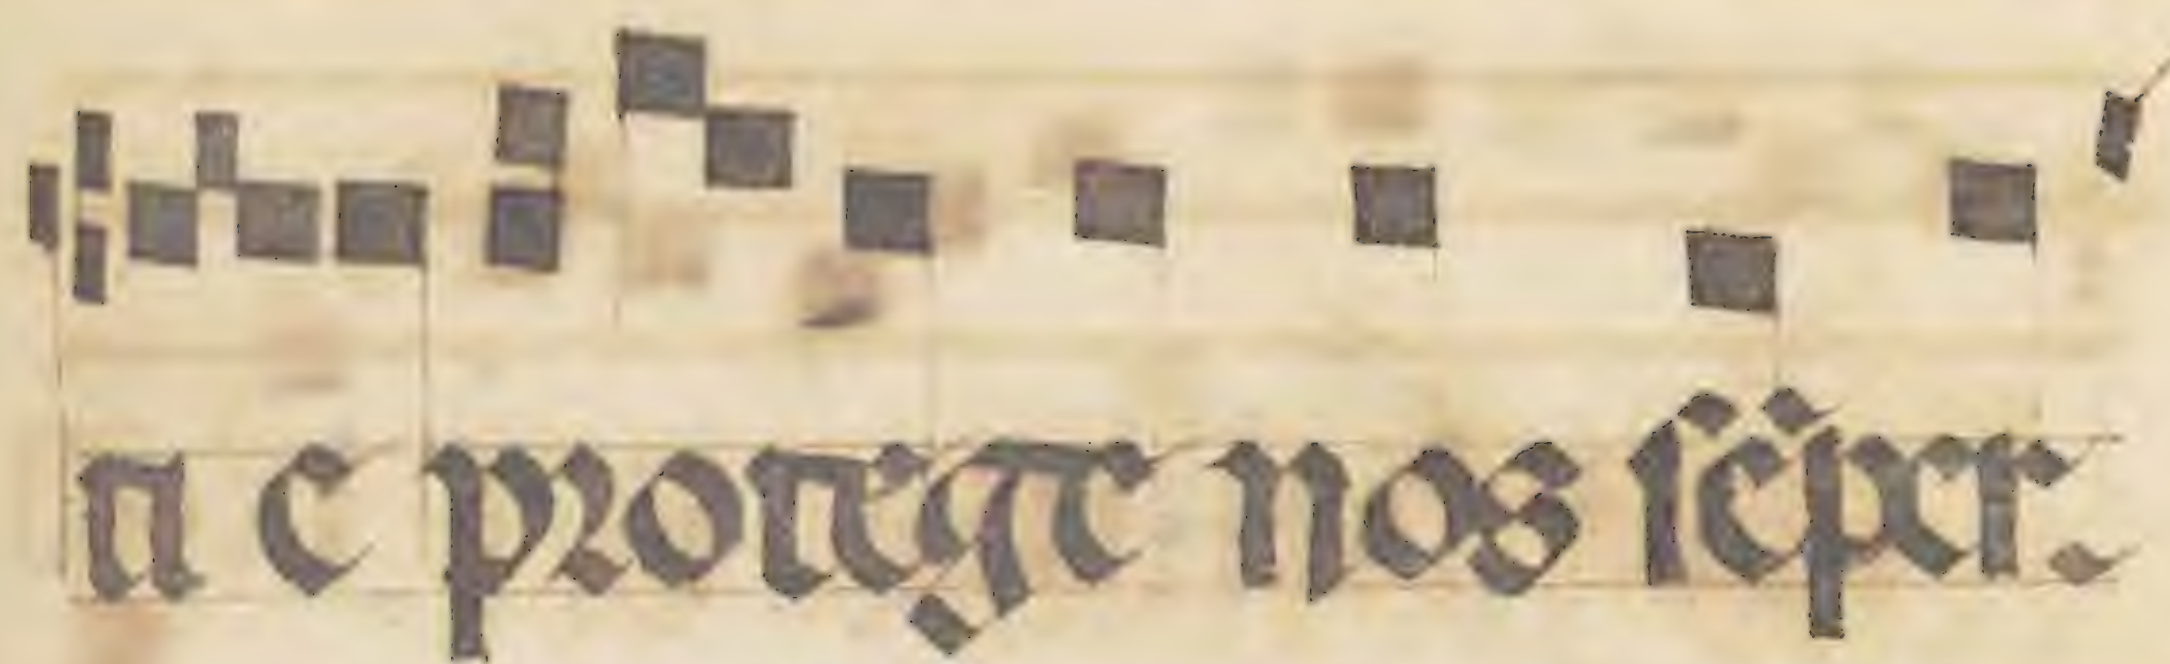 n e protege nos sēp̄er.